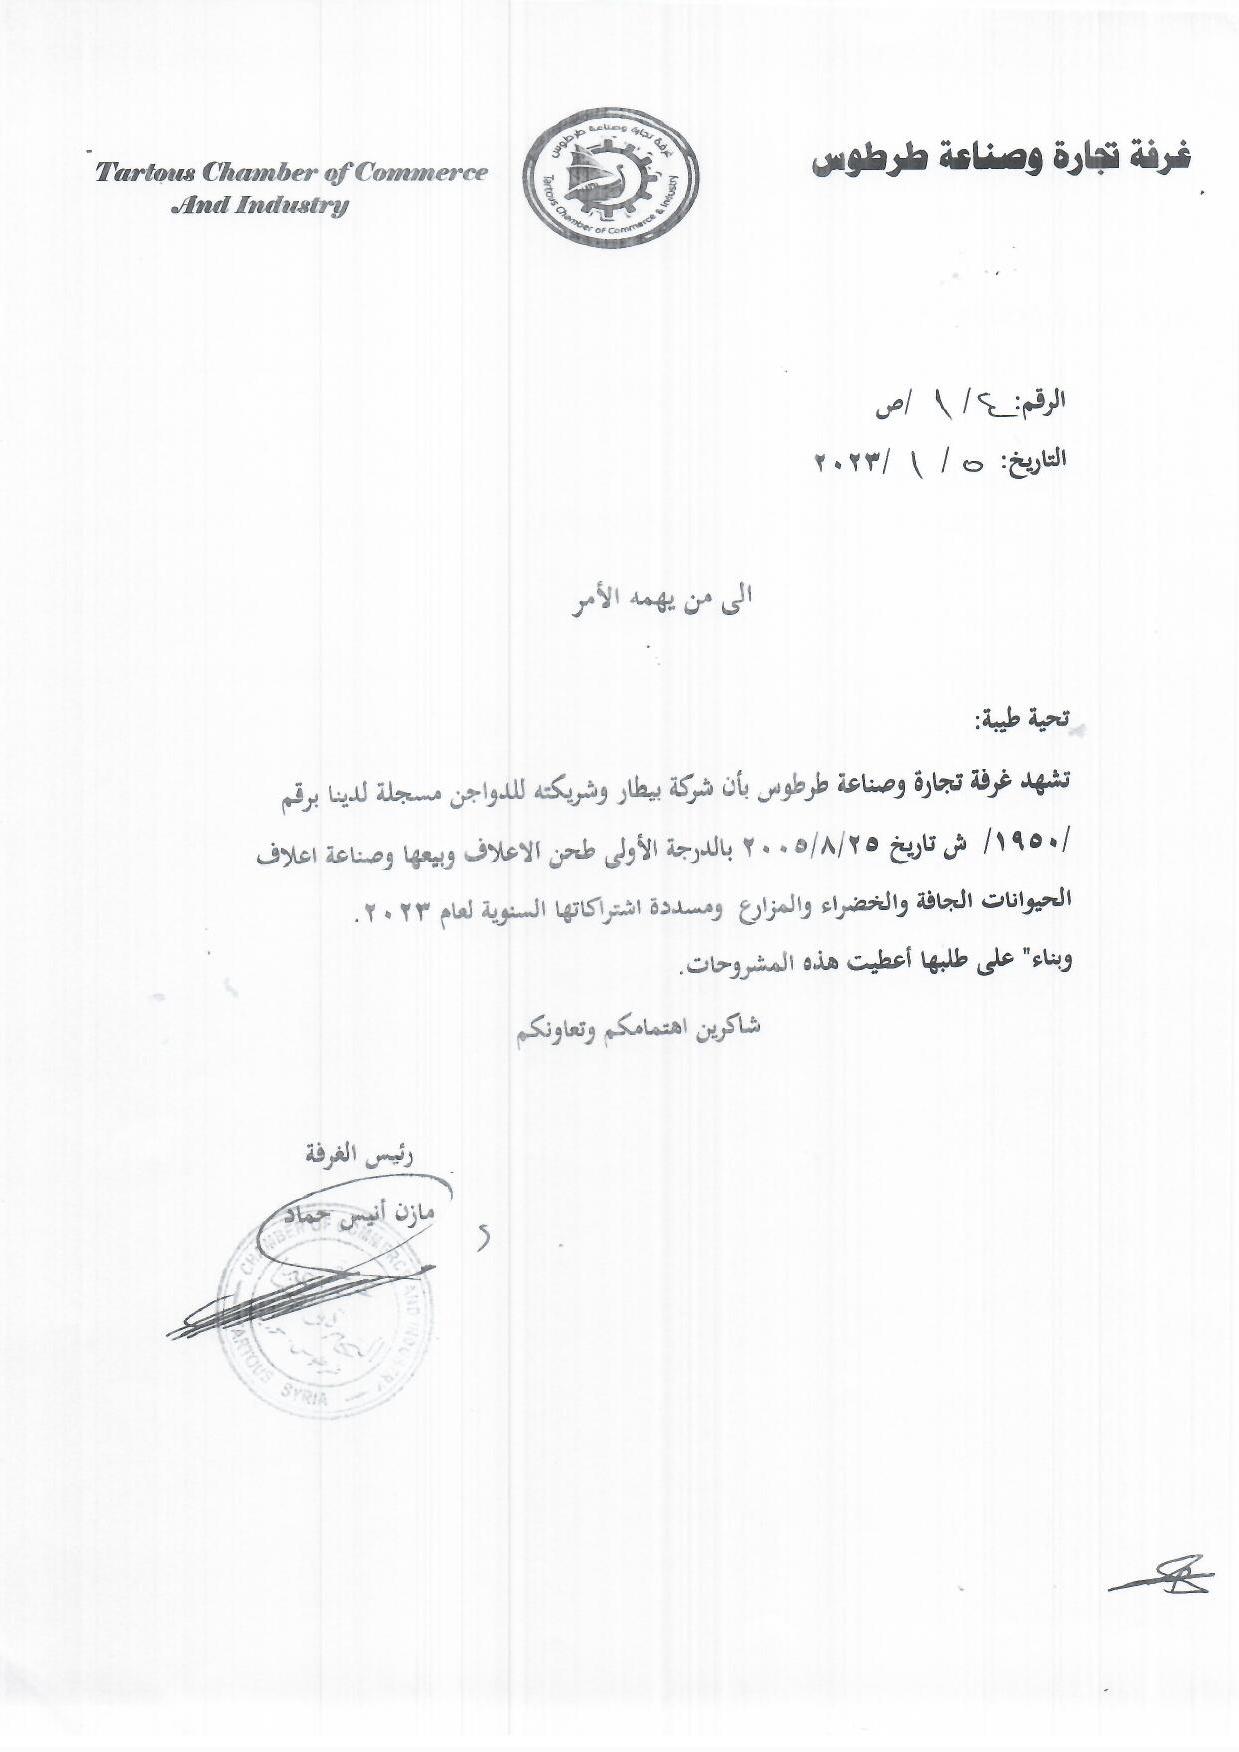 غرفة تجارة وصناعة طرطوس
Tartous Chamber of Commerce
And Industry
غرفة تجارة وصناعة طرطوس
Tartous Chamber of Commerce & Industry
الرقم: ٤ / ١ /ص
التاريخ: ٥ / ١ /٢٠٢٣
الى من يهمه الأمر
تحية طيبة:
تشهد غرفة تجارة وصناعة طرطوس بأن شركة بيطار وشريكته للدواجن مسجلة لدينا برقم
/١٩٥٠/ ش تاريخ ٢٠٠٥/٨/٢٥ بالدرجة الأولى طحن الاعلاف وبيعها وصناعة اعلاف
الحيوانات الجافة والخضراء والمزارع ومسددة اشتراكاتها السنوية لعام ٢٠٢٣.
وبناء" على طلبها أعطيت هذه المشروحات.
شاكرين اهتمامكم وتعاونكم
رئيس الغرفة
مازن أنيس حماد
CHAMBER OF COMMERCE AND INDUSTRY
TARTOUS SYRIA